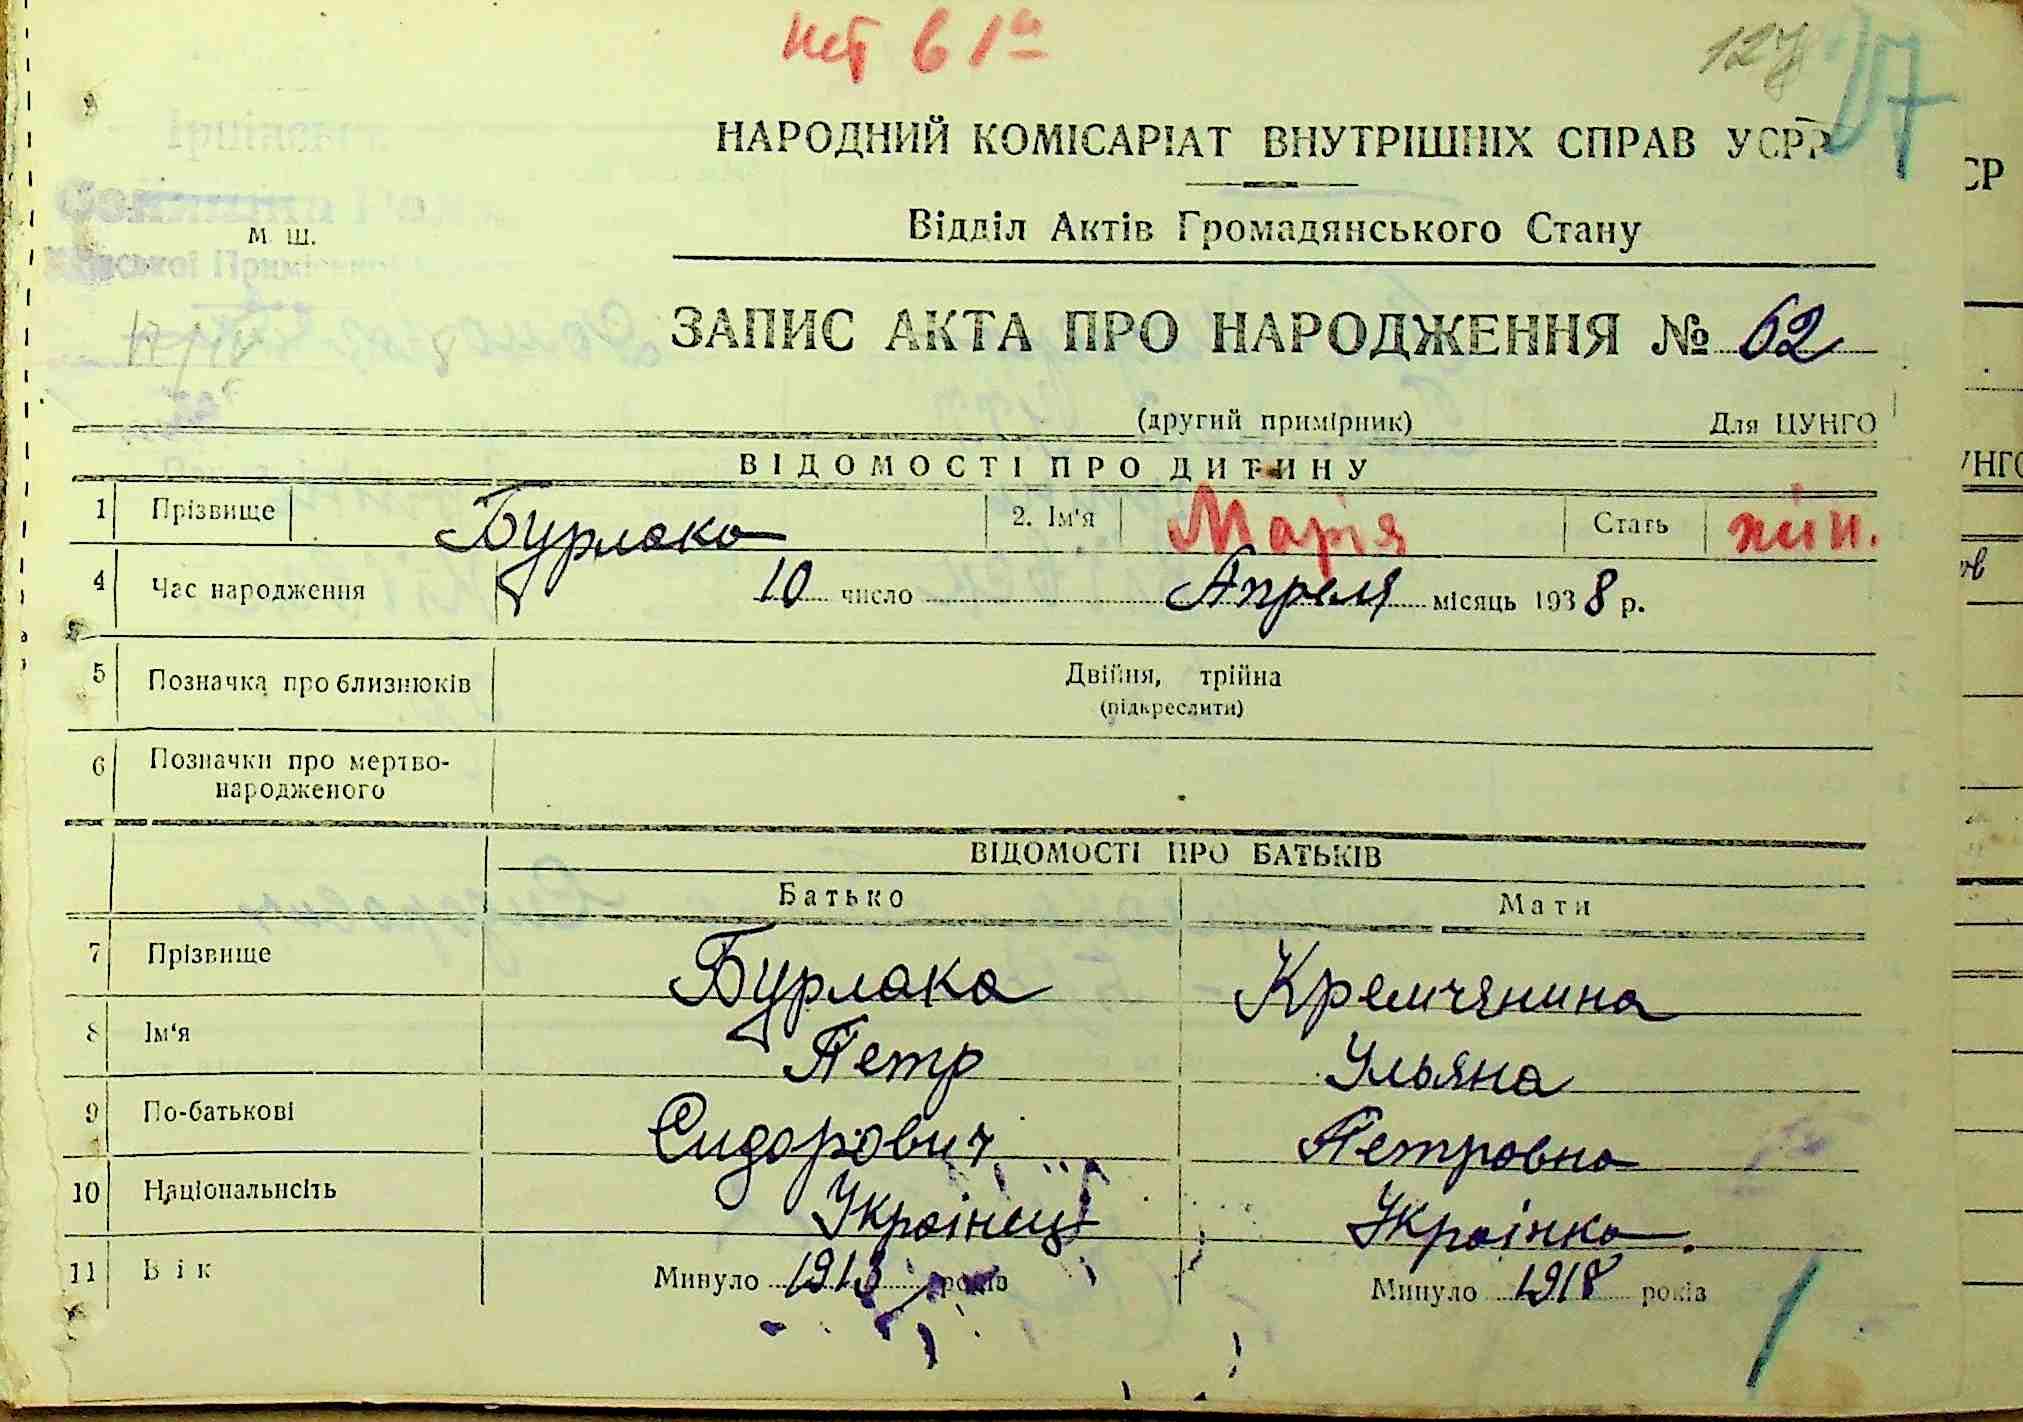 нет 61а
127
НАРОДНИЙ КОМІСАРІАТ ВНУТРІШНІХ СПРАВ УСРР
Відділ Актів Громадянського Стану
М. Ш.
ЗАПИС АКТА ПРО НАРОДЖЕННЯ № 62
(другий примірник) Для ЦУНГО
ВІДОМОСТІ ПРО ДИТИНУ
1 Прізвище Бурлака 2. Ім'я Марія Стать жін.
4 Час народження 10 число Апреля місяць 1938 р.
5 Позначка про близнюків Двійня, трійна
(підкреслити)
6 Позначки про мертво-
народженого
ВІДОМОСТІ ПРО БАТЬКІВ
Батько Мати
7 Прізвище Бурлака Кремчянина
8 Ім'я Петр Ульяна
9 По-батькові Сидорович Петровна
10 Національнсіть Украінец Украінка.
11 Вік Минуло 1913 років Минуло 1918 років